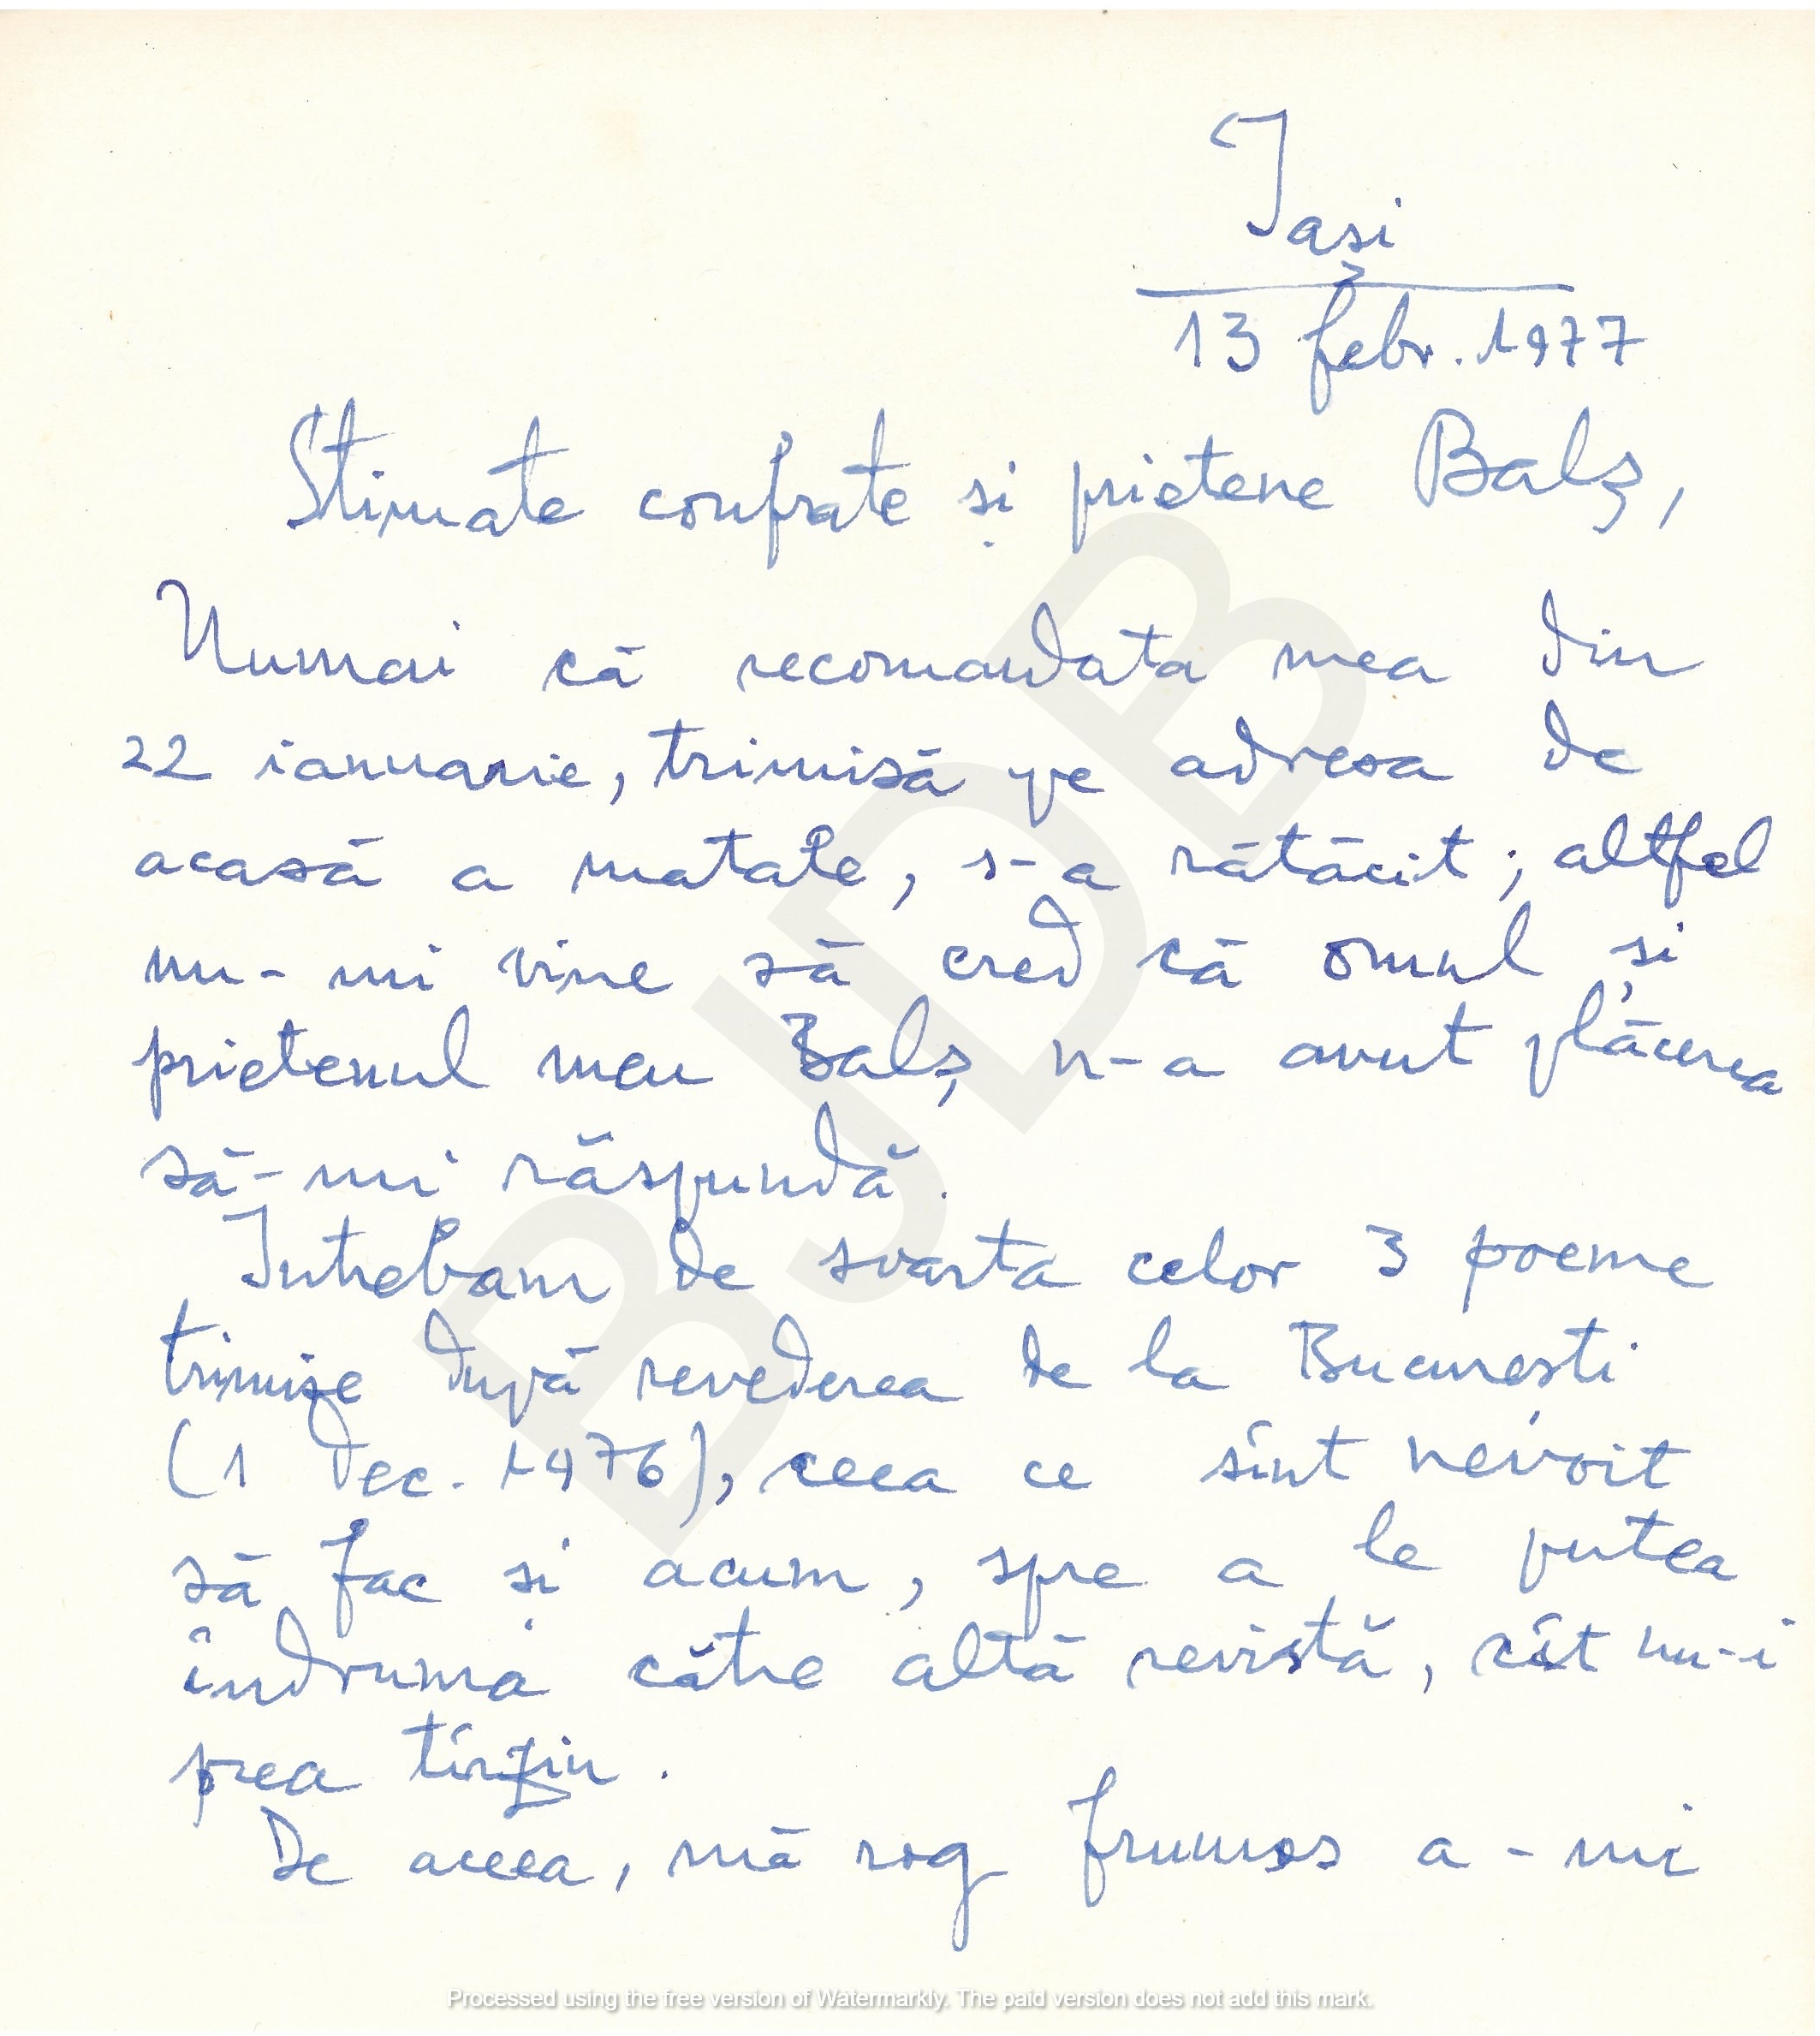 Iași
13 febr. 1977
Stimate confrate și prietene Balș,
Numai că recomandata mea din
22 ianuarie, trimisă pe adresa de
acasă a matale, s-a rătăcit; altfel
nu-mi vine să cred că omul și
prietenul meu Balș n-a avut plăcerea
să-mi răspundă.
Intrebam de soarta celor 3 poeme
trimise după revederea de la București
(1 dec. 1976), ceea ce sînt nevoit
să fac și acum, spre a le putea
îndruma către altă revistă, cît nu-i
prea tîrziu.
De aceea, mă rog frumos a-mi
BJDB
Processed using the free version of Watermarkly. The paid version does not add this mark.